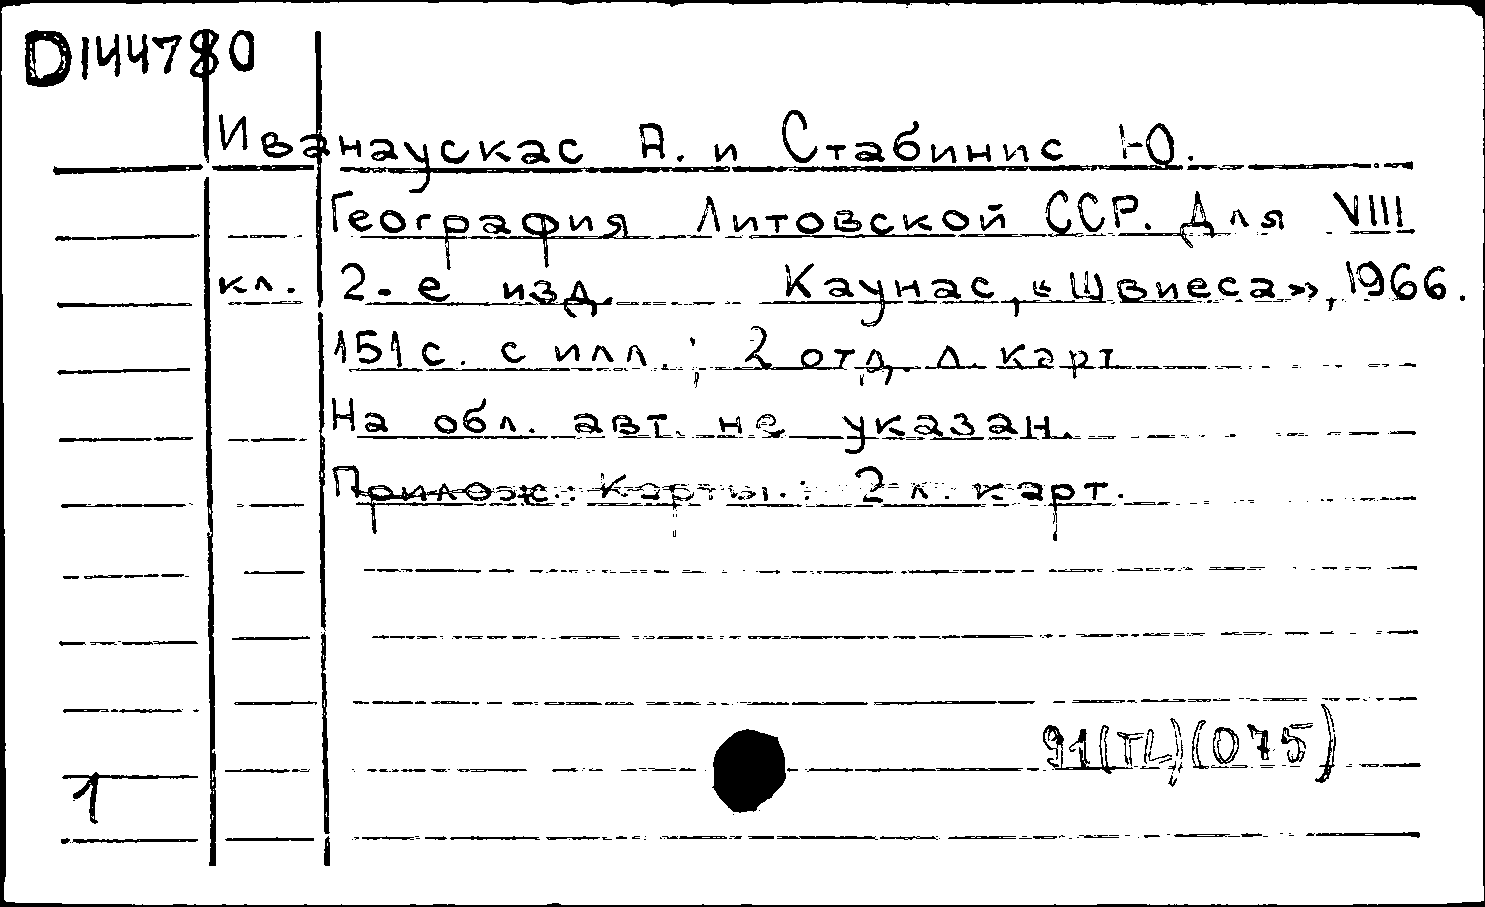 D144780
Иванаускас А. и Стабинис Ю.
География Литовской ССР. Для VIII
кл. 2-е изд. Каунас, «Швиеса», 1966.
151 с. с илл.; 2 отд. л. карт
На обл. авт. не указан.
Прилож.: Карты.: 2 л. карт.
91(TL)(075)
1